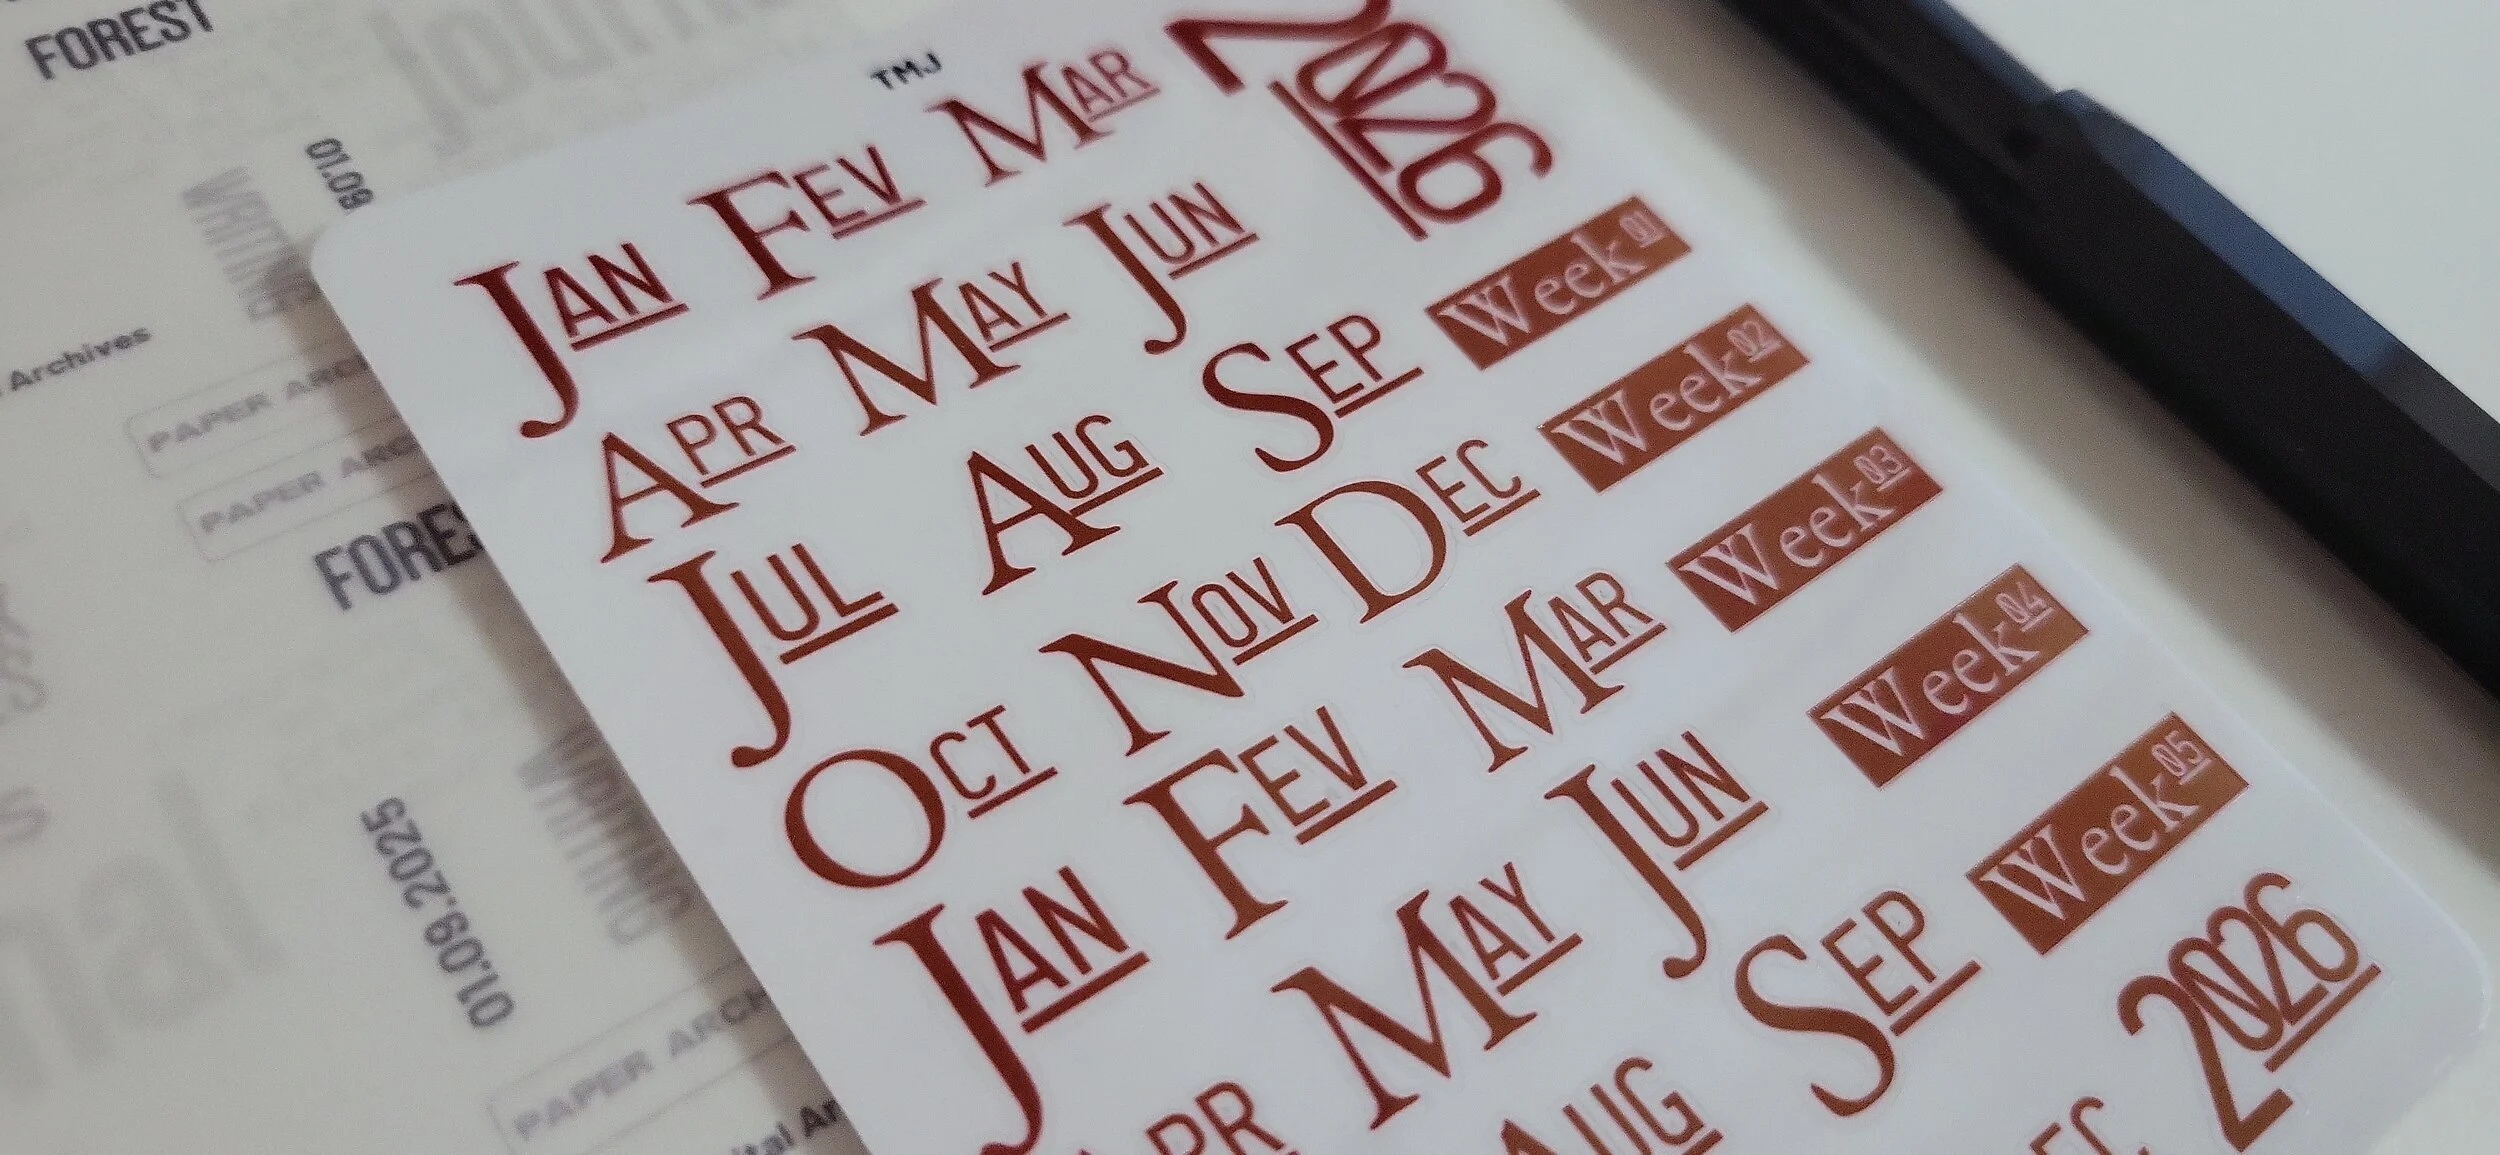 FOREST
Journal
TMJ
01.09
WRITING
Archives
PAPER ARC
PAPER ARC
FORES
01.09.2025
WRITING
PAPER ARCH
ital Ar
JAN FEV MAR
2026
APR MAY JUN
Week 01
JUL AUG SEP
Week 02
OCT NOV DEC
Week 03
JAN FEV MAR
Week 04
APR MAY JUN
Week 05
AUG SEP
EC
2026